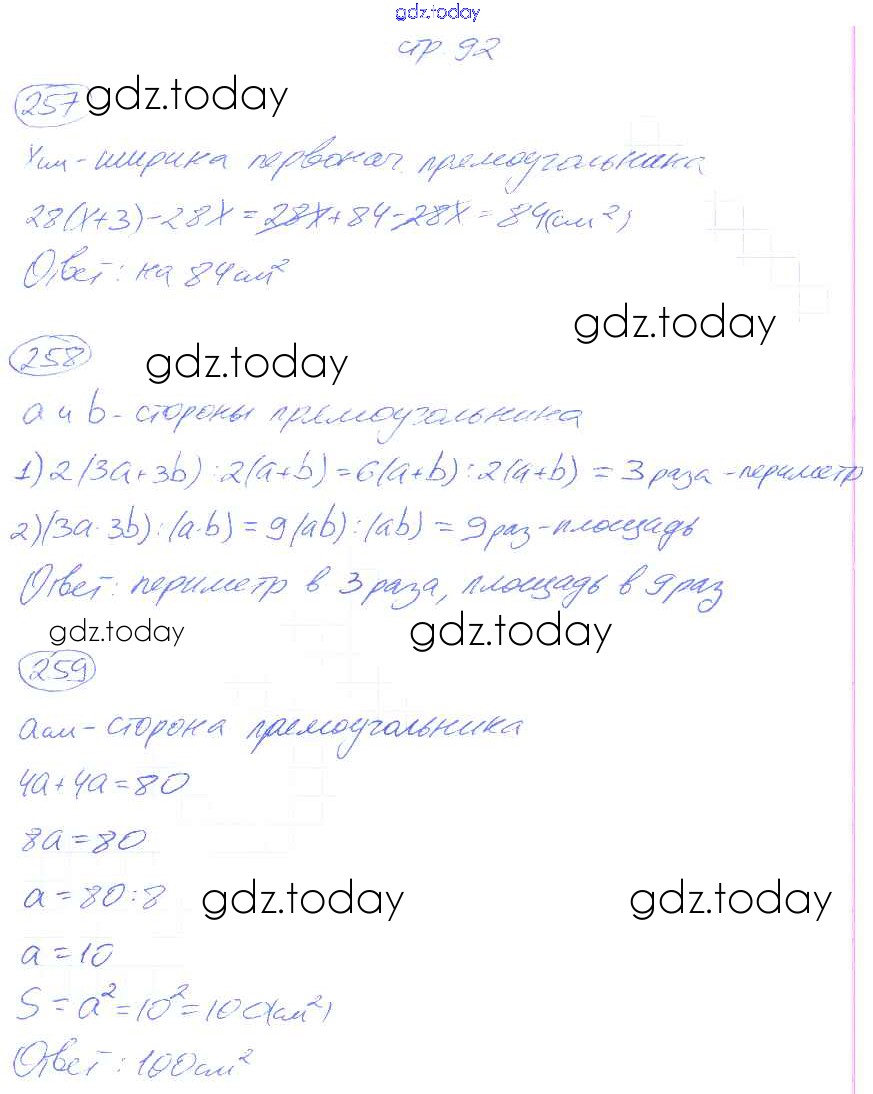 gdz.today
стр. 92
257 gdz.today
X см - ширина первонач. прямоугольника
28(X+3)-28X = 28X+84-28X = 84(см²)
Ответ: на 84 см²
gdz.today
258 gdz.today
a и b - стороны прямоугольника
1) 2(3a+3b) : 2(a+b) = 6(a+b) : 2(a+b) = 3 раза - периметр
2) (3a·3b) : (a·b) = 9(ab) : (ab) = 9 раз - площадь
Ответ: периметр в 3 раза, площадь в 9 раз
gdz.today gdz.today
259
a см - сторона прямоугольника
4a+4a=80
8a=80
a = 80:8 gdz.today gdz.today
a = 10
S = a² = 10² = 100(см²)
Ответ: 100 см²